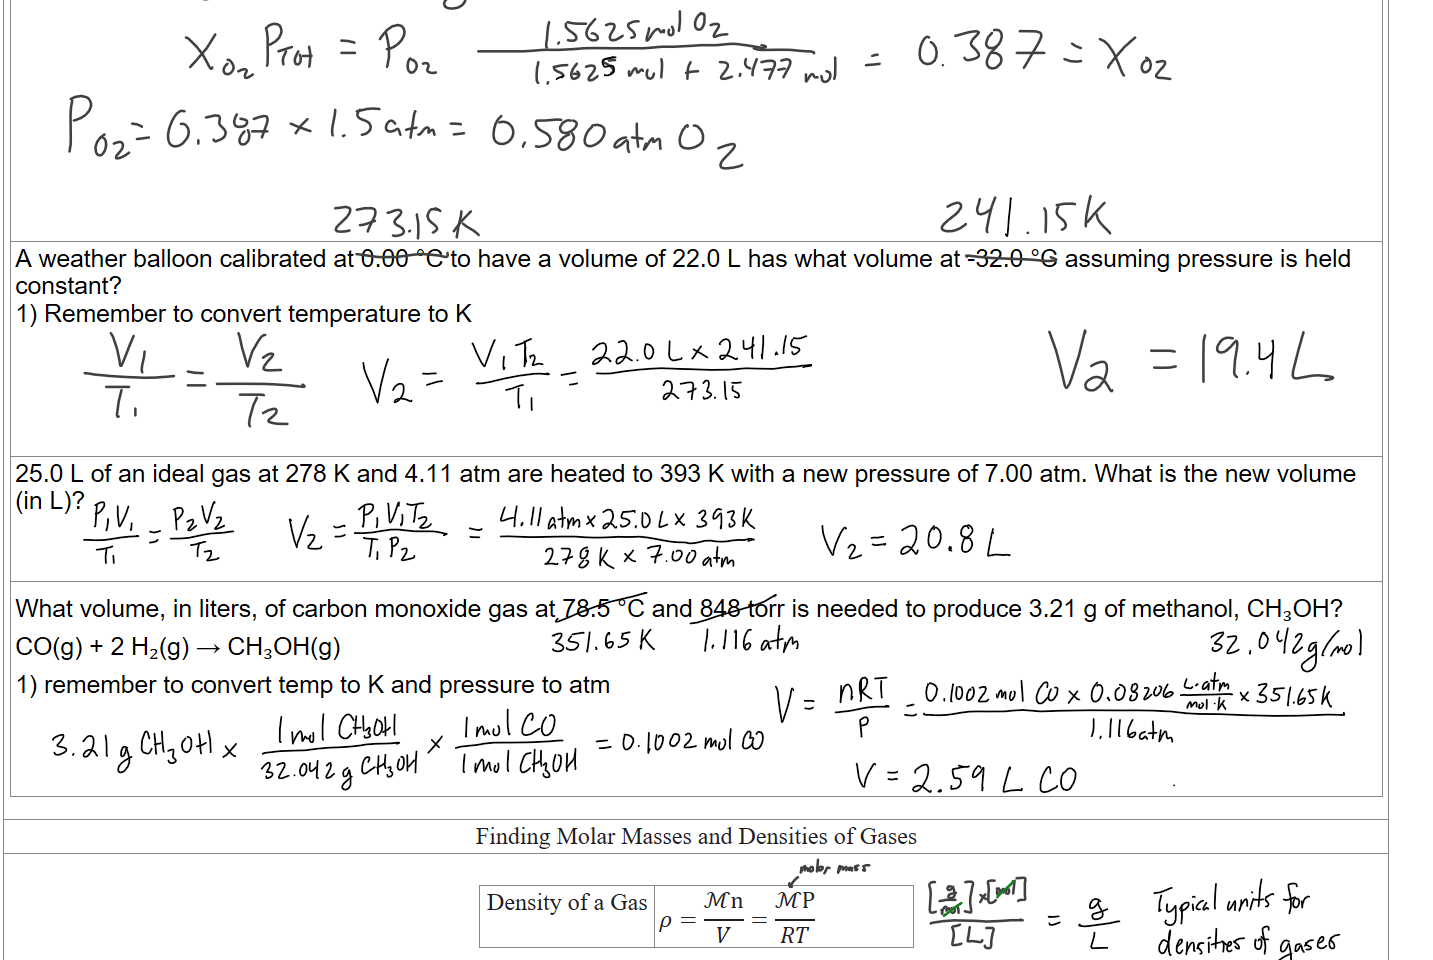 X_O2 P_Tot = P_O2   1.5625 mol O2 / (1.5625 mol + 2.477 mol) = 0.387 = X_O2
P_O2 = 0.387 × 1.5 atm = 0.580 atm O2
273.15 K   241.15 K
A weather balloon calibrated at 0.00 °C to have a volume of 22.0 L has what volume at -32.0 °C assuming pressure is held
constant?
1) Remember to convert temperature to K
V1/T1 = V2/T2   V2 = V1T2/T1 = 22.0 L × 241.15 / 273.15   V2 = 19.4 L
25.0 L of an ideal gas at 278 K and 4.11 atm are heated to 393 K with a new pressure of 7.00 atm. What is the new volume
(in L)?
P1V1/T1 = P2V2/T2   V2 = P1V1T2/T1P2 = 4.11 atm × 25.0 L × 393 K / 278 K × 7.00 atm   V2 = 20.8 L
What volume, in liters, of carbon monoxide gas at 78.5 °C and 848 torr is needed to produce 3.21 g of methanol, CH₃OH?
351.65 K   1.116 atm   32.042 g/mol
CO(g) + 2 H₂(g) → CH₃OH(g)
1) remember to convert temp to K and pressure to atm
V = nRT/P = 0.1002 mol CO × 0.08206 L·atm/mol·K × 351.65 K / 1.116 atm
3.21 g CH3OH × 1 mol CH3OH / 32.042 g CH3OH × 1 mol CO / 1 mol CH3OH = 0.1002 mol CO
V = 2.59 L CO
Finding Molar Masses and Densities of Gases
molar mass
Density of a Gas   ρ = ℳn/V = ℳP/RT   [g/mol]×[mol] / [L] = g/L
Typical units for
densities of gases